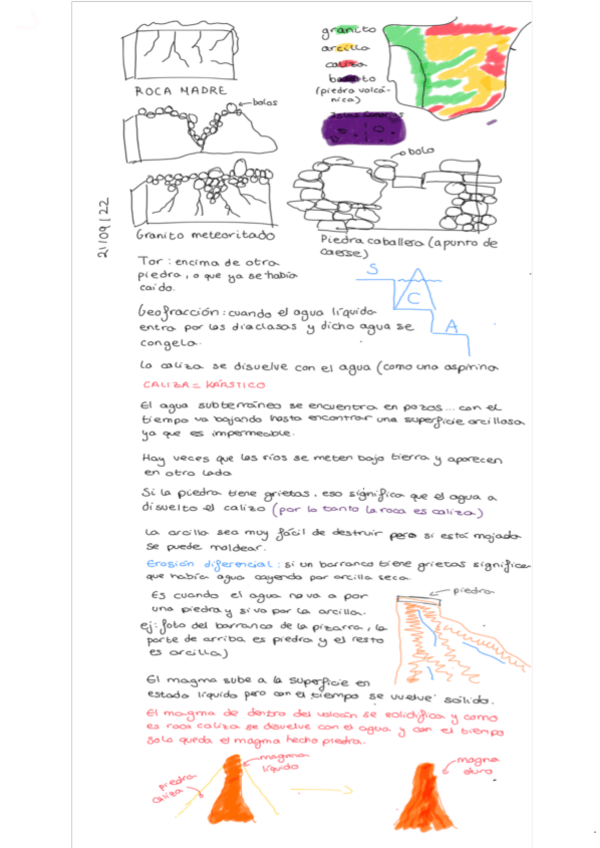 granito
arcilla
caliza
basalto
(piedra volcá-
nica)
Islas Canarias
ROCA MADRE
bolos
bolo
21/09/22
Granito meteoritado
Piedra caballera (apunto de
caerse)
Tor: encima de otra
piedra, o que ya se había
caído.
S
C
A
Geofracción: cuando el agua líquida
entra por las diaclasas y dicho agua se
congela.
La caliza se disuelve con el agua (como una aspirina
CALIZA = KÁRSTICO
El agua subterránea se encuentra en pozos... con el
tiempo va bajando hasta encontrar una superficie arcillosa
ya que es impermeable.
Hay veces que los ríos se meten bajo tierra y aparecen
en otro lado
Si la piedra tiene grietas, eso significa que el agua a
disuelto el calizo (por lo tanto la roca es caliza)
La arcilla sea muy fácil de destruir pero si está mojada
se puede moldear.
Erosión diferencial: si un barranco tiene grietas significa
que había agua cayendo por arcilla seca.
Es cuando el agua no va a por
una piedra y si va por la arcilla.
ej: foto del barranco de la pizarra, la
parte de arriba es piedra y el resto
es arcilla)
piedra
El magma sube a la superficie en
estado líquido pero con el tiempo se vuelve sólido.
El magma de dentro del volcán se solidifica y como
es roca caliza se disuelve con el agua y con el tiempo
solo queda el magma hecho piedra.
piedra
caliza
magma
líquido
magma
duro